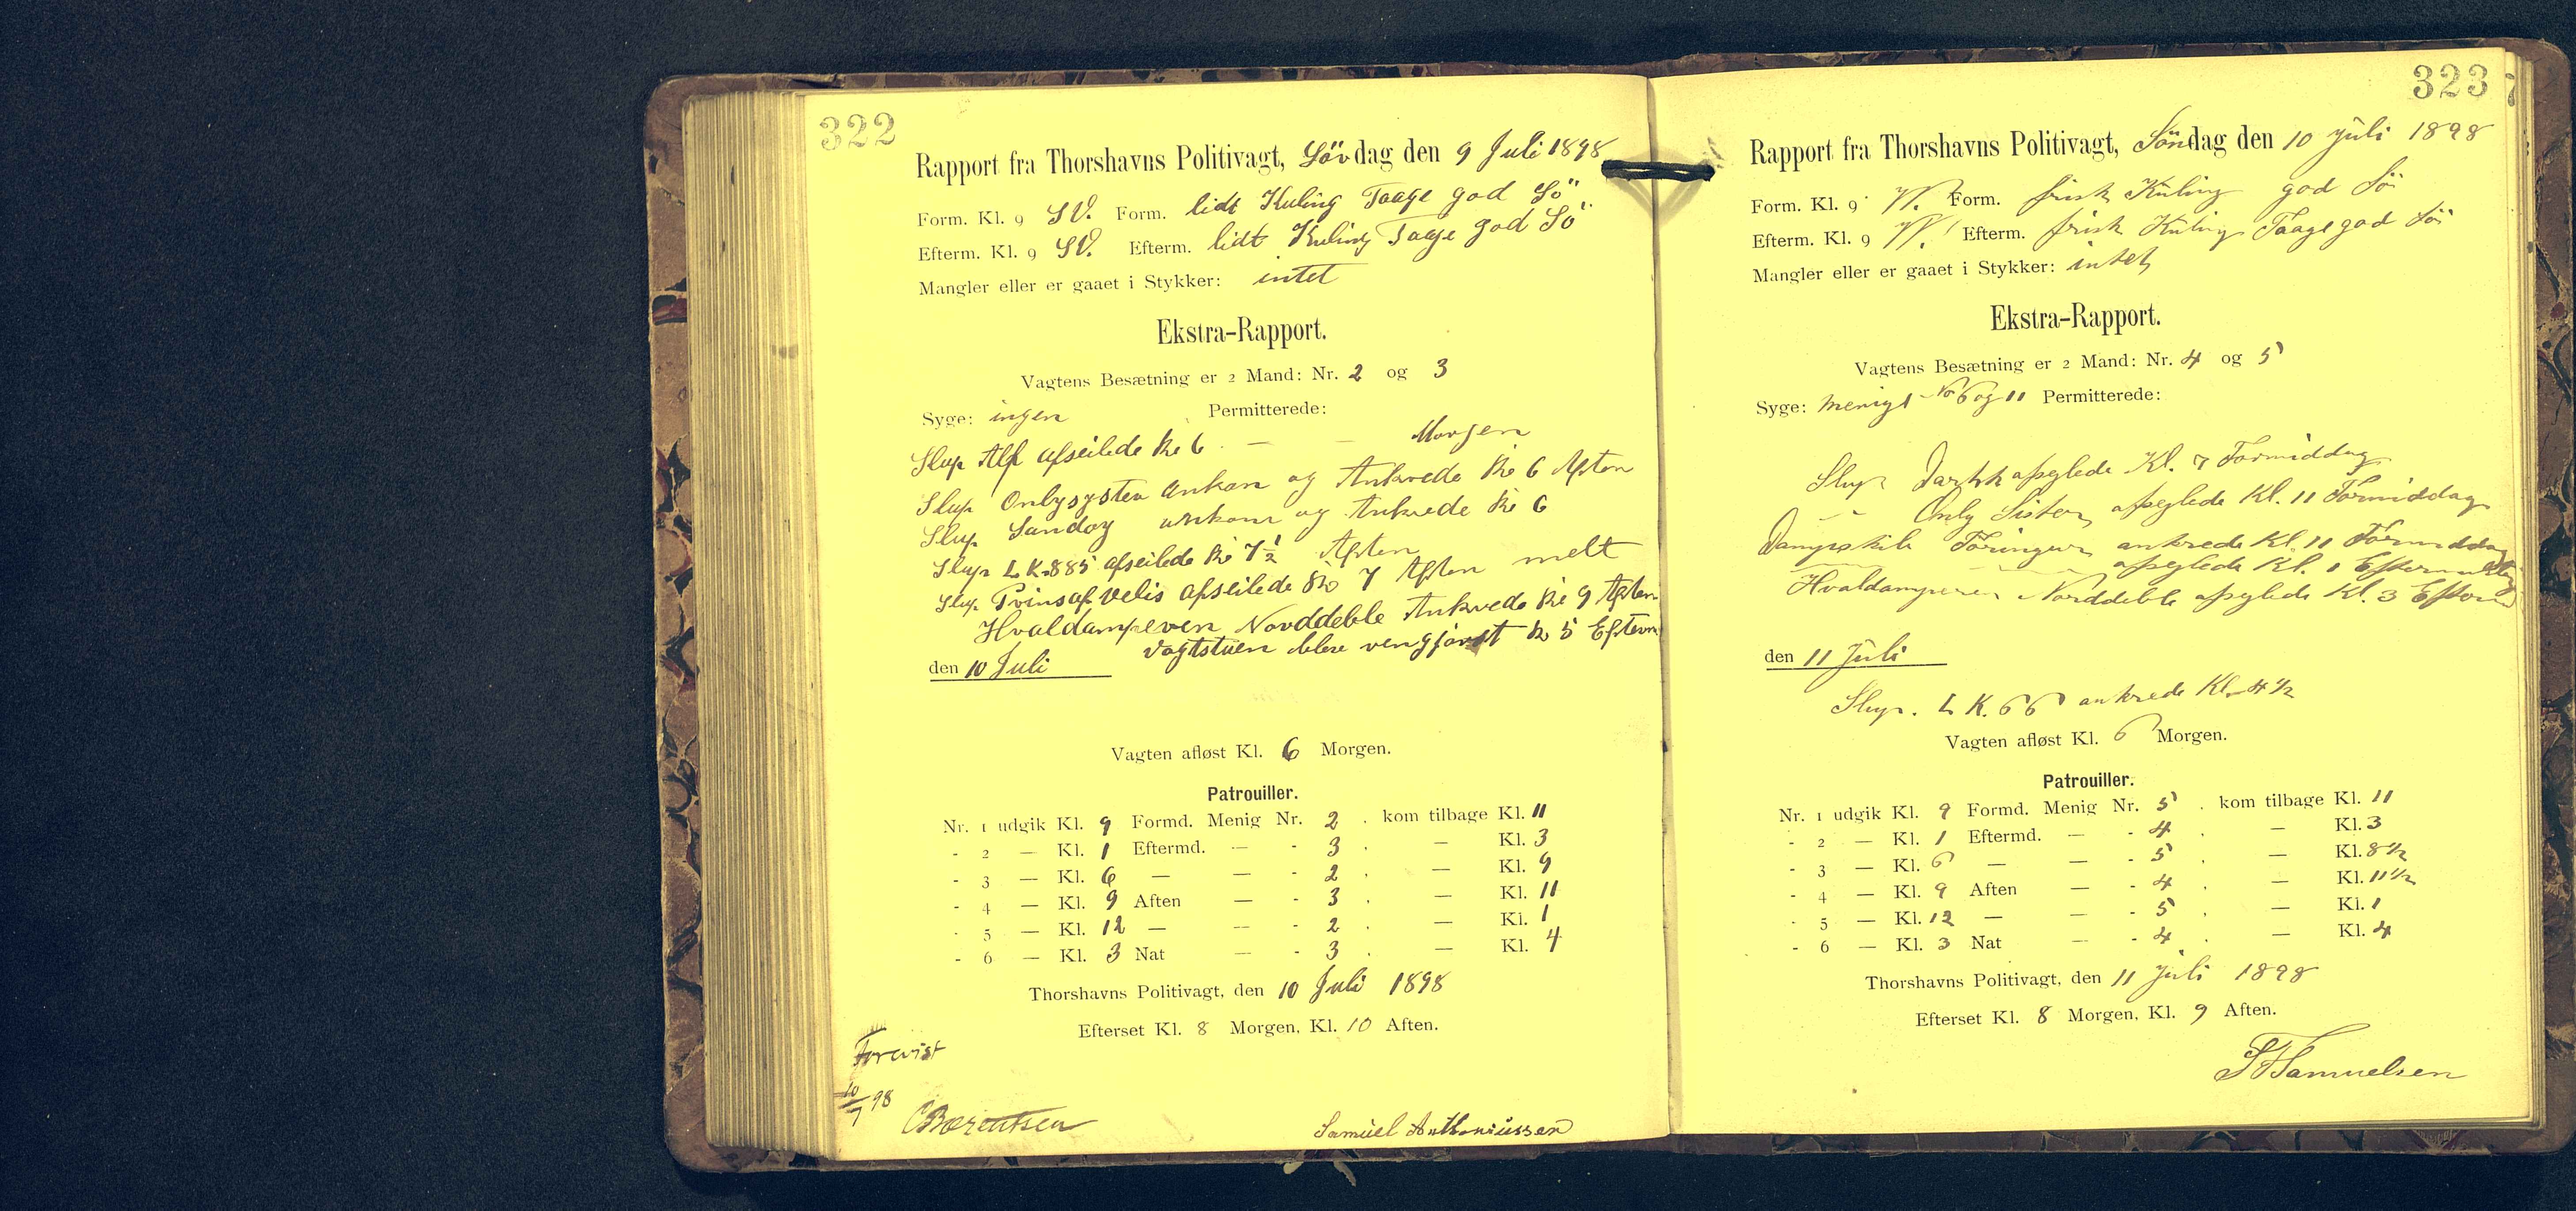 322
Rapport fra Thorshavns Politivagt, Lövdag den 9 Juli 1898
Form. Kl. 9 SV. Form. lidt Kuling Taage god Sö
Efterm. Kl. 9 SV. Efterm. lidt Kuling Taage god Sö
Mangler eller er gaaet i Stykker: intet
Ekstra-Rapport.
Vagtens Besætning er 2 Mand: Nr. 2 og 3
Syge: ingen Permitterede:
Slup Alf afseilede Kl 6 — — Morgen
Slup Onlysysten ankom og Ankrede Kl 6 Aften
Slup Sandoy ankom og Ankrede Kl 6
Slup L. K. 885 afseilede Kl 7½ Aften
Slup Prins af Velis afseilede Kl 7 Aften melt
Hvaldamperen Norddeble Ankrede Kl 9 Aften
Vagtstuen blev rengjörst Kl 5 Efterm
den 10 Juli
Vagten afløst Kl. 6 Morgen.
Patrouiller.
Nr. 1 udgik Kl. 9 Formd. Menig Nr. 2 . kom tilbage Kl. 11
- 2 — Kl. 1 Eftermd. — - 3 . — Kl. 3
- 3 — Kl. 6 — — - 2 . — Kl. 9
- 4 — Kl. 9 Aften — - 3 . — Kl. 11
- 5 — Kl. 12 — — - 2 . — Kl. 1
- 6 — Kl. 3 Nat — - 3 . — Kl. 4
Thorshavns Politivagt, den 10 Juli 1898
Efterset Kl. 8 Morgen, Kl. 10 Aften.
Forevist
10/7 98
CBærentsen
Samuel Anthoniussen
323
Rapport fra Thorshavns Politivagt, Söndag den 10 Juli 1898
Form. Kl. 9 W. Form. frisk Kuling god Sö
Efterm. Kl. 9 W. Efterm. frisk Kuling Taage god Sö
Mangler eller er gaaet i Stykker: intet
Ekstra-Rapport.
Vagtens Besætning er 2 Mand: Nr. 4 og 5
Syge: menige No 6 og 11 Permitterede:
Slup afseglede Kl. 7 Formiddag
— Only Sister afseglede Kl. 11 Formiddag
Dampskib Föringur ankrede Kl. 11 Formiddag
— — afseglede Kl. 1 Eftermiddag
Hvaldamperen Norddeble afseglede Kl. 3 Efterm
den 11 Juli
Slup. L K. 66 ankrede Kl. 4½
Vagten afløst Kl. 6 Morgen.
Patrouiller.
Nr. 1 udgik Kl. 9 Formd. Menig Nr. 5 . kom tilbage Kl. 11
- 2 — Kl. 1 Eftermd. — - 4 . — Kl. 3
- 3 — Kl. 6 — — - 5 . — Kl. 8½
- 4 — Kl. 9 Aften — - 4 . — Kl. 11½
- 5 — Kl. 12 — — - 5 . — Kl. 1
- 6 — Kl. 3 Nat — - 4 . — Kl. 4
Thorshavns Politivagt, den 11 Juli 1898
Efterset Kl. 8 Morgen, Kl. 9 Aften.
SFSamuelsen